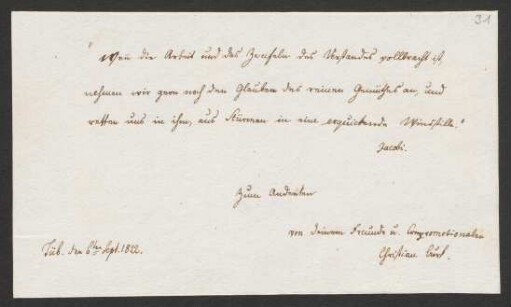 31
"Wen̄ die Arbeit und das Zweifeln des Verstandes vollbracht ist,
nehmen wir gern noch den Glauben des reinen Gemüthes an, und
retten uns in ihm, aus Stürmen in eine erquickende Windstille."
Jacobi.
Zum Andenken
von deinem Freunde u. Compromotionalen
Tüb. den 6ten Sept. 1822.
Christian